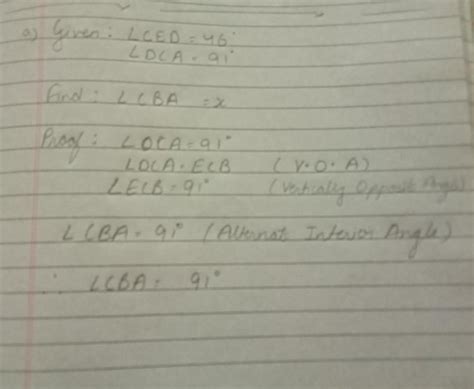 a) Given: ∠CED = 46°
∠DCA = 91°
Find: ∠CBA = x
Proof: ∠DCA = 91°
∠DCA = ECB (V.O.A)
∠ECB = 91° (Vertically Opposit Angle)
∠CBA = 91° (Alternat Interior Angle)
∴ ∠CBA = 91°